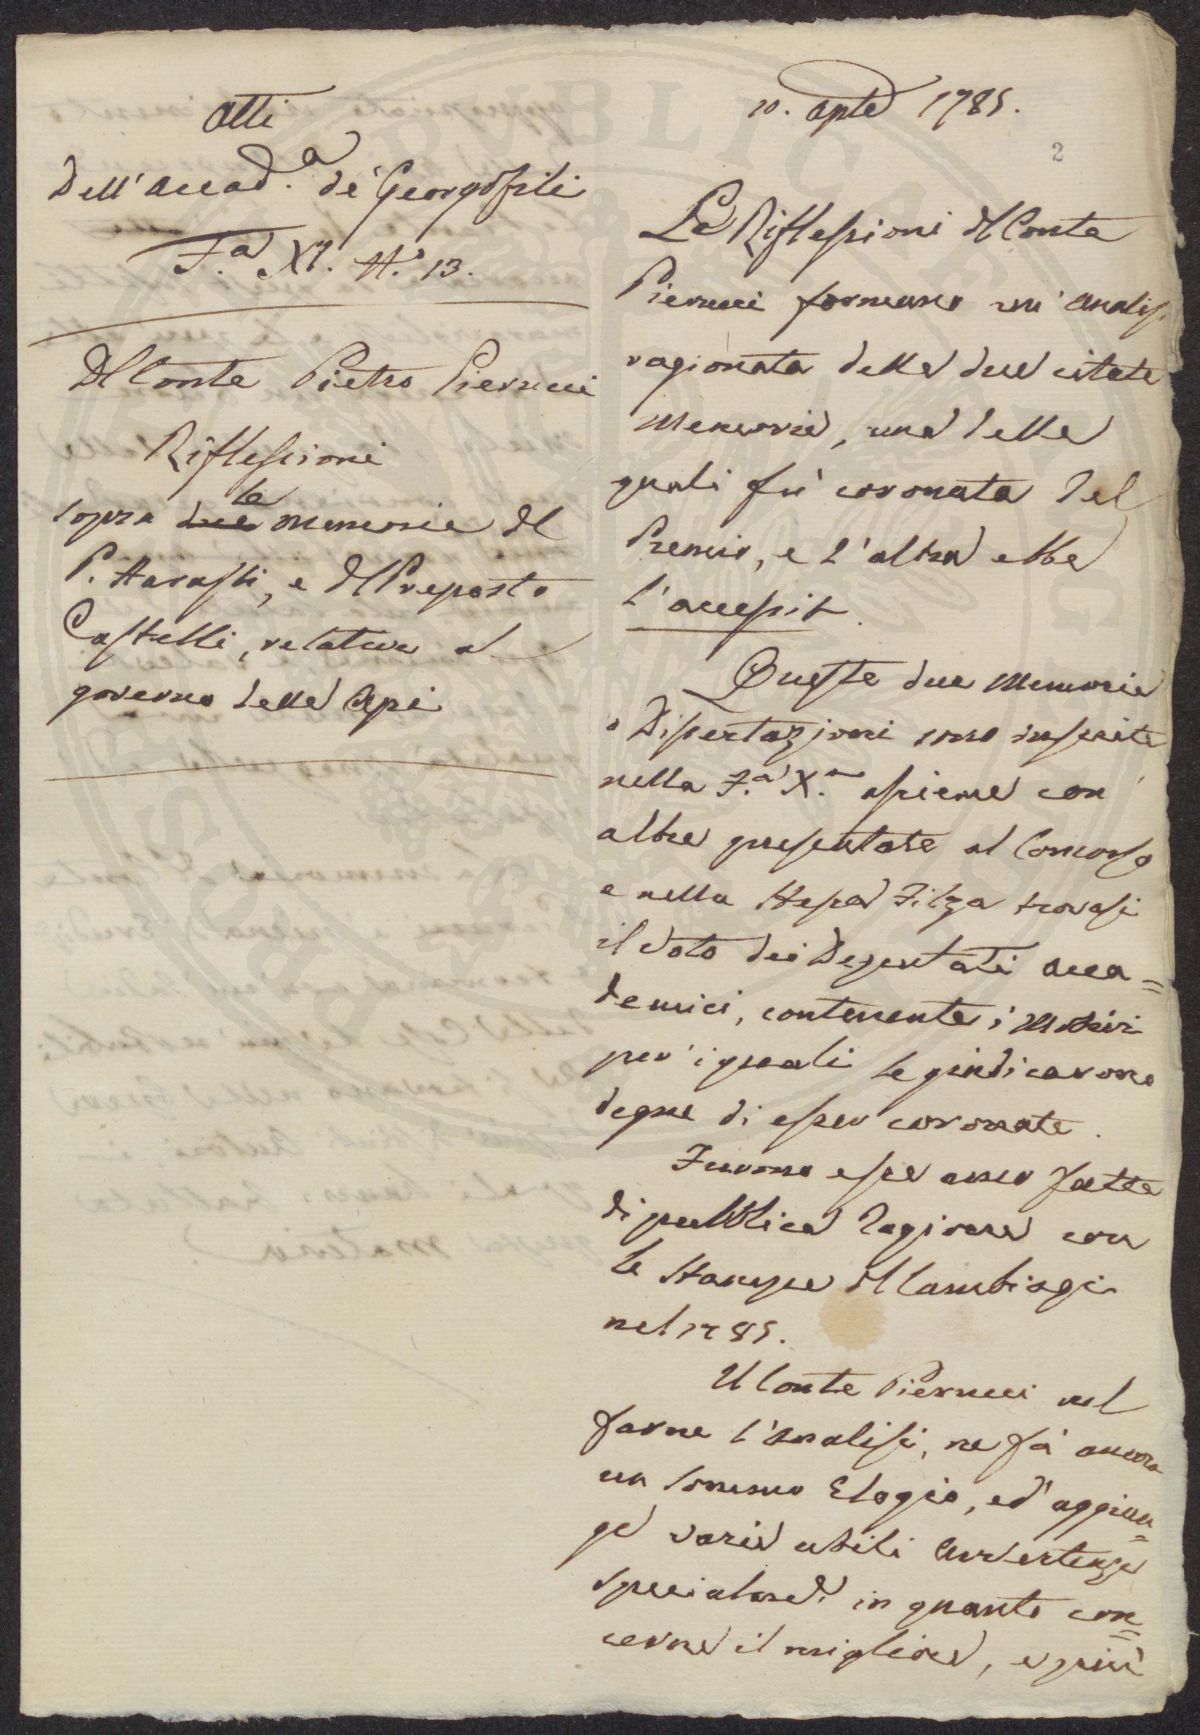 Atti
Dell'Accad.a de' Georgofili
F.a XI. N.o 13.
Del Conte Pietro Pierucci
Riflessioni
sopra due le memorie del
P. Harasti, e del Preposto
Castelli, relative al
governo delle Api
10. Aple 1785.
2
Le Riflessioni del Conte
Pierucci formano un' analisi
ragionata delle due citate
Memorie, una delle
quali fù coronata del
Premio, e l'altra ebbe
l'accessit.
Queste due Memorie
o Dissertazioni sono inserite
nella F.a X.a assieme con
altre presentate al Concorso
e nella stessa Filza trovasi
il Voto dei Deputati Acca=
demici, contenente i Motivi
per i quali le giudicarono
degne di esser coronate.
Furono esse anco fatte
di pubblica ragione con
le Stampe del Cambiagi
nel 1785.
Il Conte Pierucci nel
farne l'Analisi, ne fà ancora
un sommo Elogio, ed aggiun=
ge varie utili Avvertenze
specialmte. in quanto con=
cerne il migliore, e più